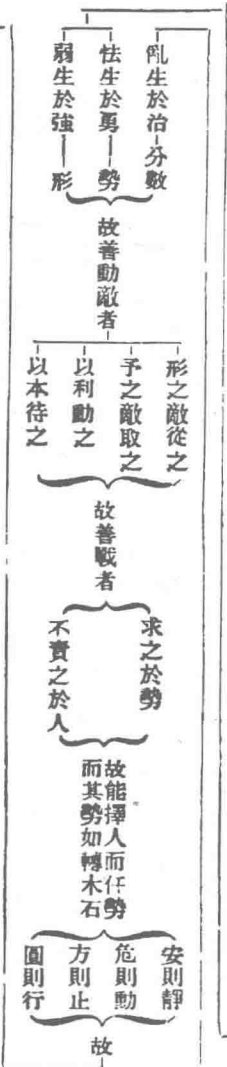 亂生於治分數
怯生於勇勢
弱生於強形
故善動敵者
形之敵從之
予之敵取之
以利動之
以本待之
故善戰者
求之於勢
不責之於人
故能擇人而任勢
而其勢如轉木石
安則靜
危則動
方則止
圓則行
故